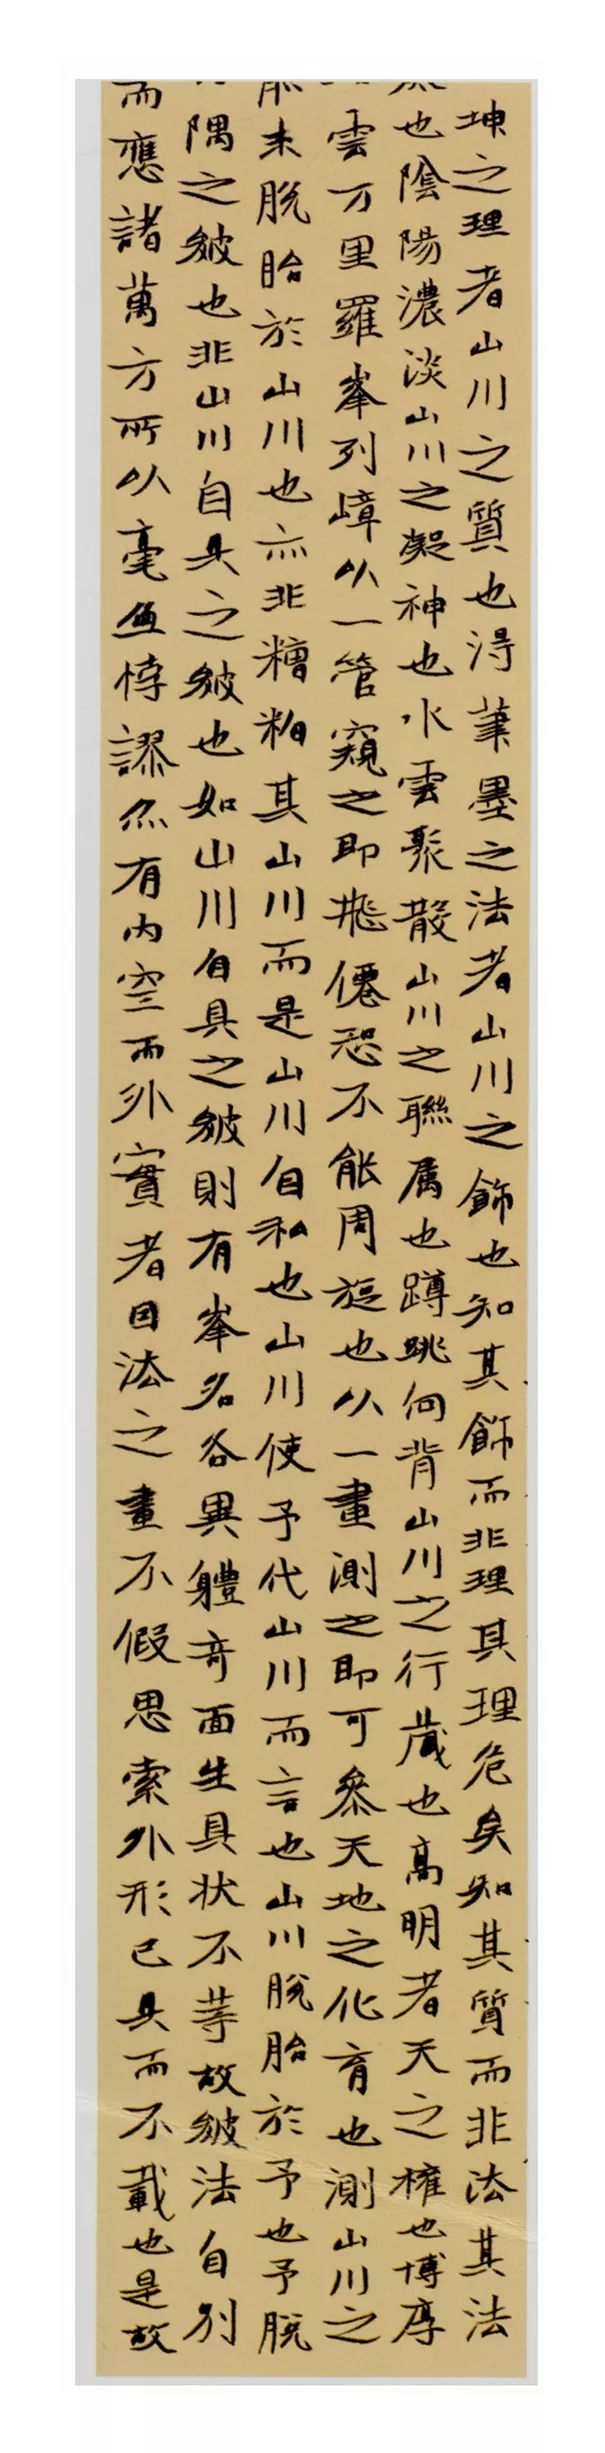 坤之理者山川之質也淂筆墨之法者山川之飾也知其飾而非理其理危矣知其質而非法其法
也陰陽濃淡山川之凝神也水雲聚散山川之聯属也蹲跳向背山川之行蔵也高明者天之權也博厚
雲万里羅峯列嶂以一管窺之即飛僊恐不能周旋也以一畫測之即可叅天地之化育也測山川之
未脫胎於山川也亦非糟粕其山川而是山川自私也山川使予代山川而言也山川脫胎於予也予脫
隅之皴也非山川自具之皴也如山川自具之皴則有峯名各異體奇面生具状不等故皴法自別
而應諸萬方所以毫無悖謬亦有内空而外實者因法之畫不假思索外形已具而不載也是故